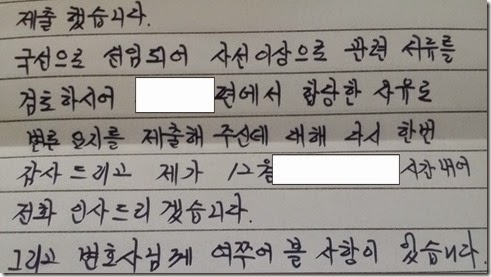 제출 했습니다.
국선으로 선임되어 사선이상으로 관련 서류를
검토하시어 편에서 합당한 사유로
변론 요지를 제출해 주신데 대해 다시 한번
감사 드리고 제가 12월 시간내어
전화 인사드리겠습니다.
그리고 변호사님께 여쭈어 볼 사항이 있습니다.